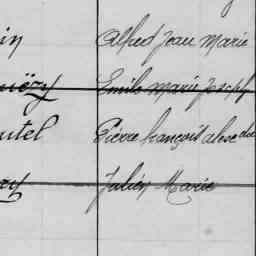 in Alfred Jean Marie
Emile Marie Joseph
utel Pierre François
Julien Marie